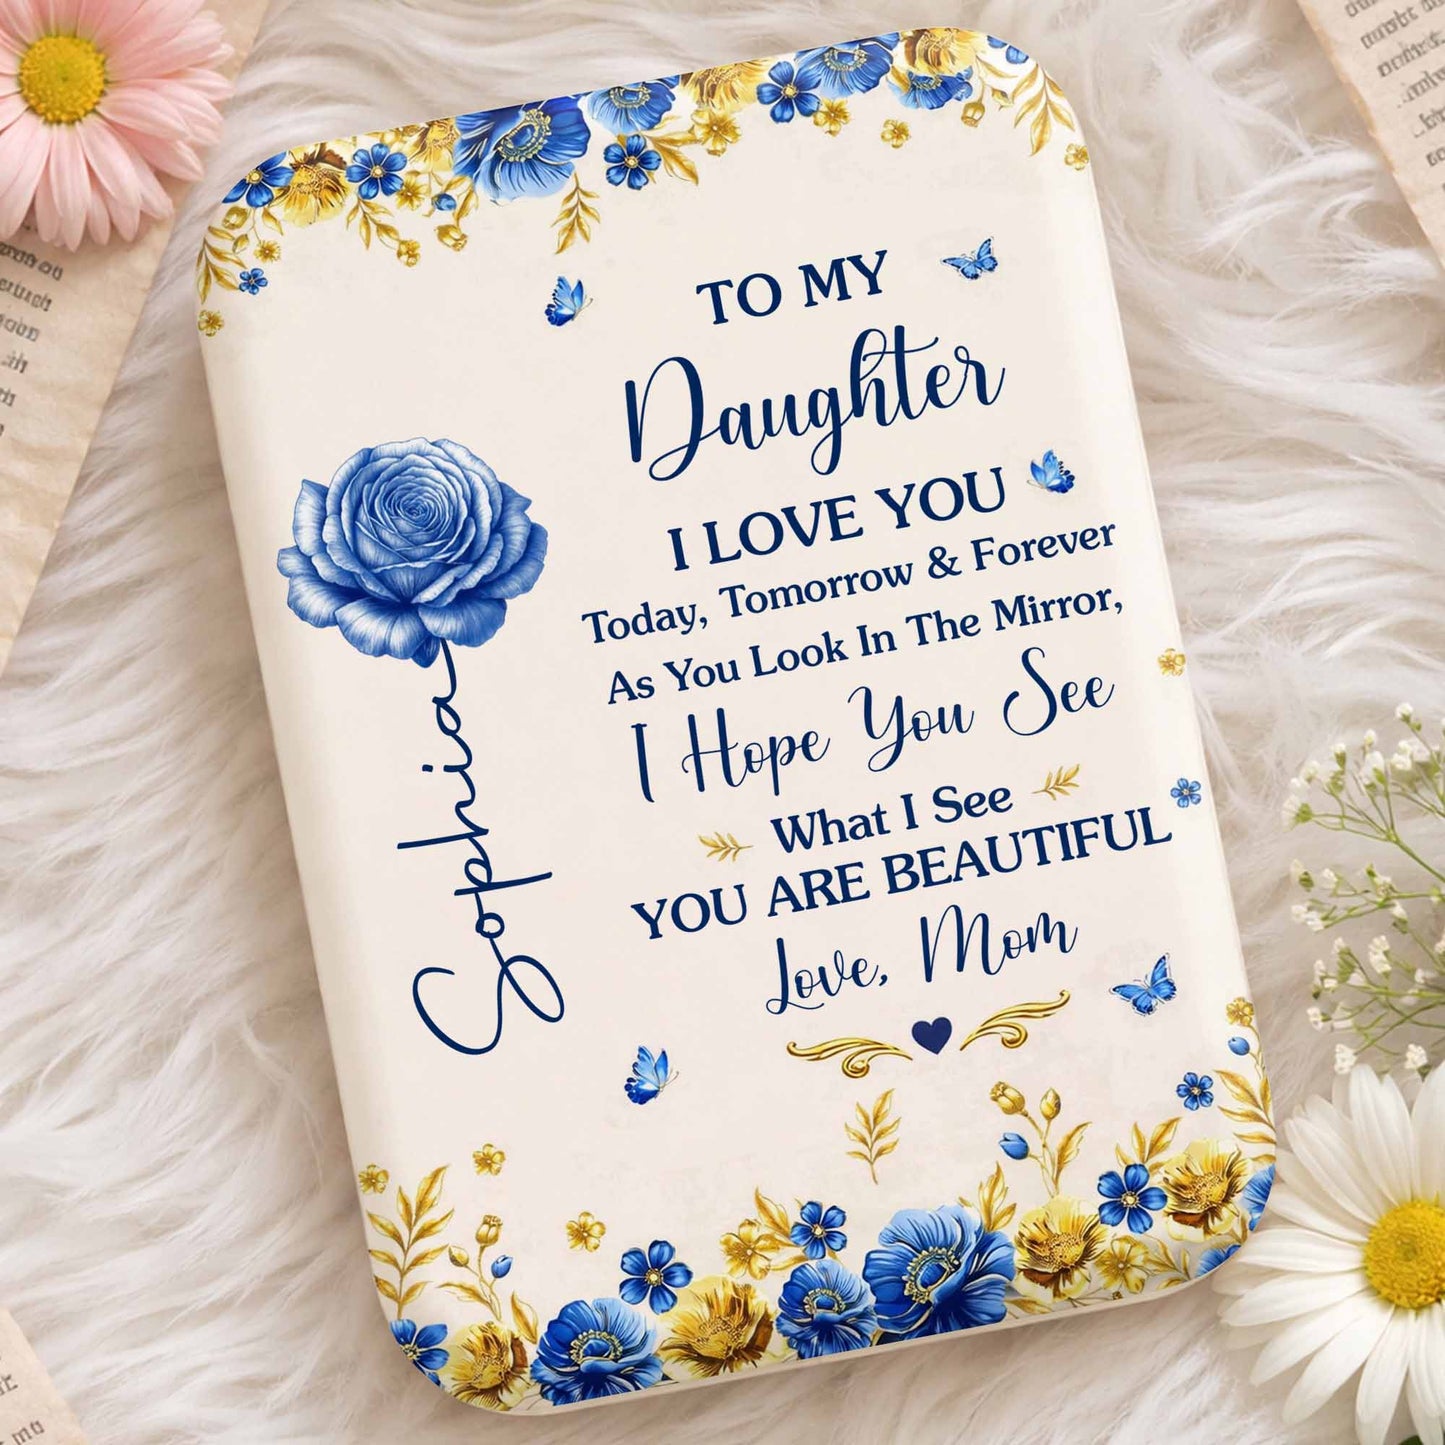 TO MY
Daughter
I LOVE YOU
Today, Tomorrow & Forever
As You Look In The Mirror,
I Hope You See
What I See
YOU ARE BEAUTIFUL
Love, Mom
Sophia